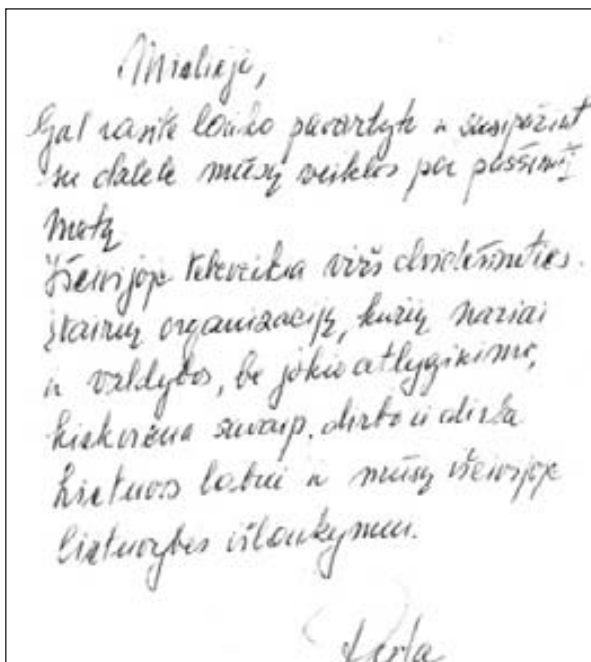 Mielieji,
Gal rasite laiko pavartyti ir susipažint
su dalele mūsų veiklos per pusšimtį
metų
Išeivijoje tebeveikia virš dvidešimties
įvairių organizacijų, kurių nariai
ir valdybos, be jokio atlyginimo,
kiekviena savaip, dirbo ir dirba
Lietuvos labui ir mūsų išeivijoje
lietuvybės išlaikymui.